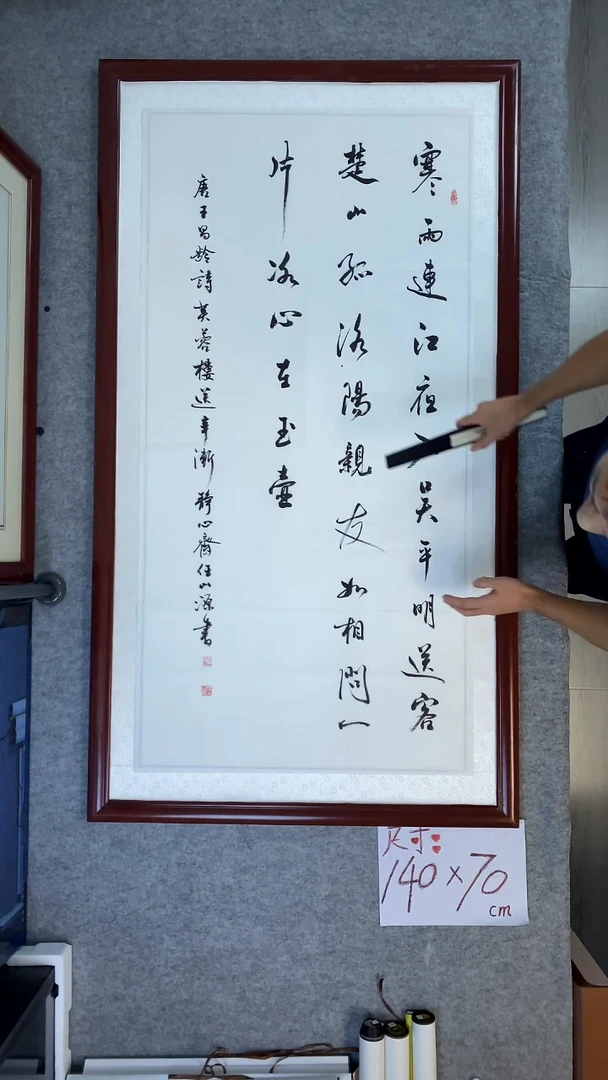 寒雨連江夜入吳平明送客
楚山孤洛陽親友如相問一
片冰心在玉壺
唐王昌齡詩芙蓉樓送辛漸 靜心齋任山源書
尺寸:
140×70
cm